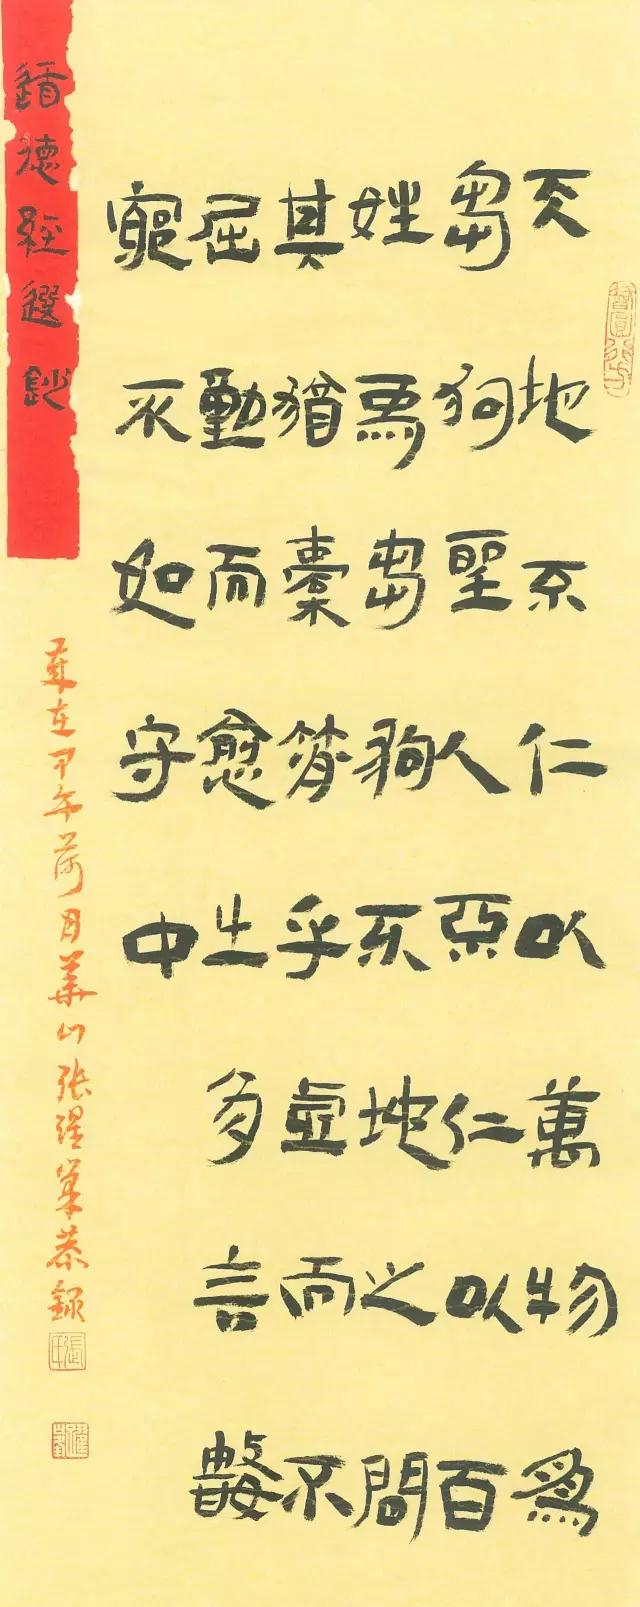 天地不仁以萬物為
芻狗聖人不仁以百
姓為芻狗天地之間
其猶橐籥乎虛而不
屈動而愈出多言數
窮不如守中
道德經選鈔
歲在甲午荷月華山張恭錄